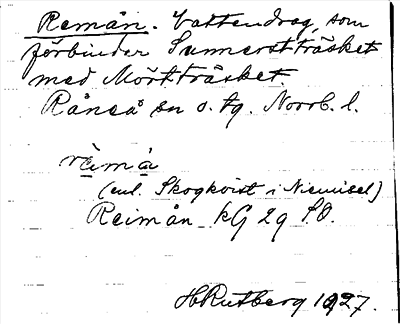 Remån. Vattendrag, som
förbinder Sunnerstträsket
med Mörtträsket.
Råneå sn o. tg. Norrb. l.
rèimå
(enl. Skogkvist i Niemisel)
Reimån kG 29 S.O.
HRutberg 1927.